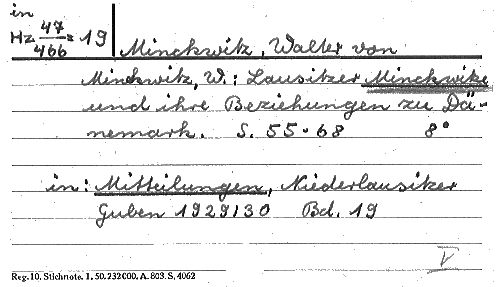 in
Hz 47/466 = 19 Minckwitz, Walter von
Minckwitz, W.: Lausitzer Minckwitze
und ihre Beziehungen zu Dä-
nemark. S. 55-68 8°
in: Mitteilungen, Niederlausitzer
Guben 1929/30 Bd. 19
V
Reg. 10. Stichnote. I. 50. 232000. A. 803. S. 4062